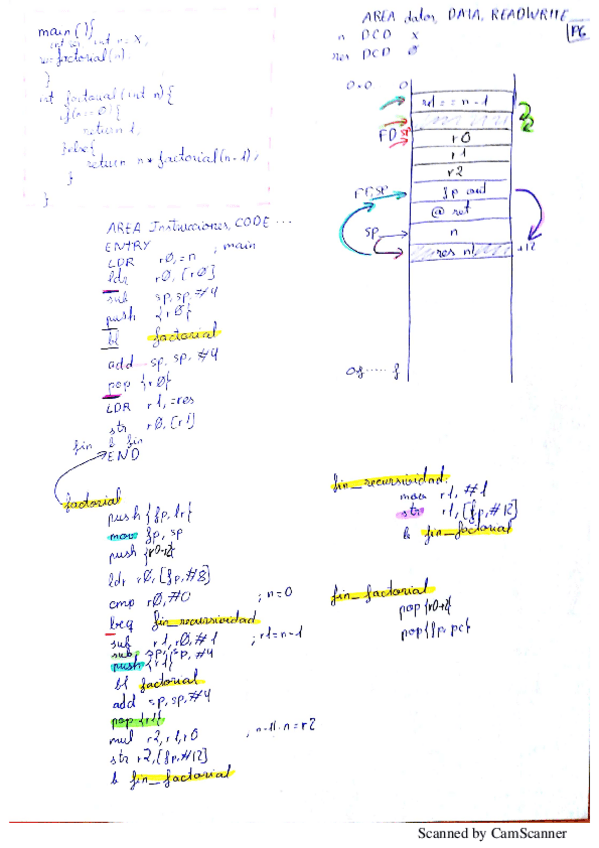 AREA datos, DATA, READWRITE
P6
n DCD x
res DCD Ø
main(){
int n, X,
factorial(n).
}
int factorial (int n){
if(n==0){
return 1,
}else{
return n * factorial(n-1),
}
}
0x0 0
r1 == n-1
FD
r0
r1
r2
fp, sp
fp ant
@ ret
sp
n
res n!
+12
0f ..... f
AREA Instrucciones, CODE ...
ENTRY ; main
LDR r0, =n
ldr r0, [r0]
sub sp, sp, #4
push {r0}
bl factorial
add sp, sp, #4
pop {r0}
LDR r1, =res
str r0, [r1]
fin b fin
END
factorial
push {fp, lr}
mov fp, sp
push {r0-r2}
ldr r0, [fp, #8]
cmp r0, #0 ; n=0
beq fin_recursividad
sub r1, r0, #1 ; r1=n-1
sub sp, sp, #4
push {r1}
bl factorial
add sp, sp, #4
pop {r1}
mul r2, r1, r0 ; n-1!·n=r2
str r2, [fp, #12]
b fin_factorial
fin_recursividad.
mov r1, #1
str r1, [fp, #12]
b fin_factorial
fin_factorial
pop {r0-r2}
pop {fp, pc}
Scanned by CamScanner